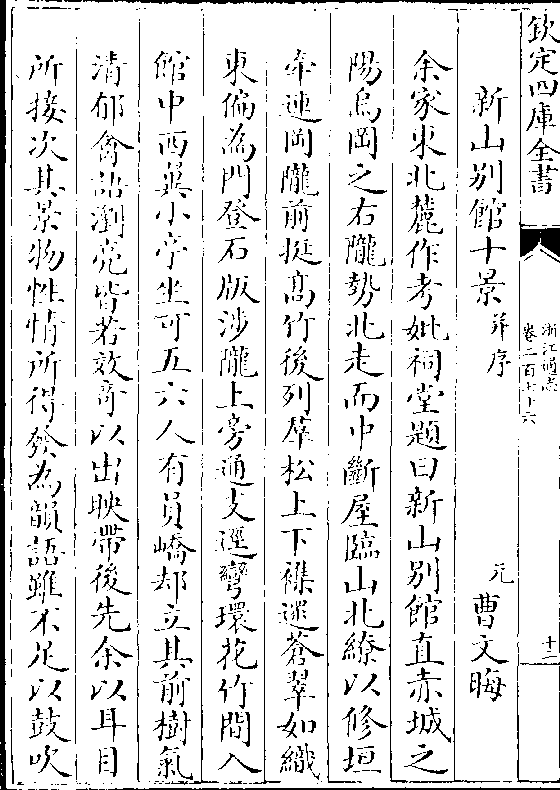 欽定四庫全書
浙江通志
卷二百七十六
十二
新山別館十景 并序 元 曹文晦
余家東北麓作考妣祠堂題曰新山別館直赤城之
陽烏岡之右隴勢北走而中斷屋臨山北繚以修垣
牽連岡隴前挺高竹後列羣松上下襍遝蒼翠如織
東偏為門登石版涉隴上旁通支逕彎環花竹間入
館中西巽小亭坐可五六人有員嶠却立其前樹氣
清郁禽語瀏亮皆若效奇以出映帶後先余以耳目
所接次其景物性情所得發為韻語雖不足以鼓吹